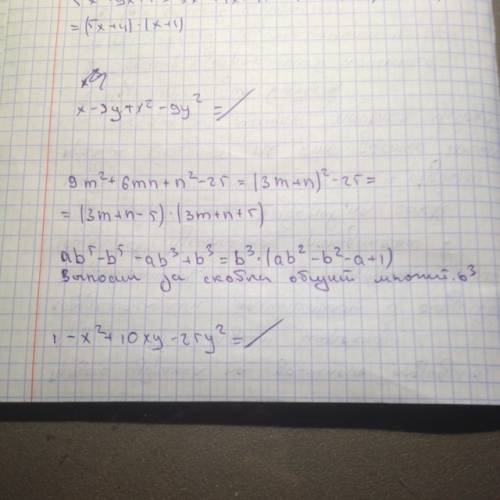 = (5x+4)·(x+1)
x-3y+x²-9y²=
9m²+6mn+n²-25=(3m+n)²-25=
=(3m+n-5)·(3m+n+5)
ab⁵-b⁵-ab³+b³=b³·(ab²-b²-a+1)
Выносим за скобки общий множит. b³
1-x²+10xy-25y²=